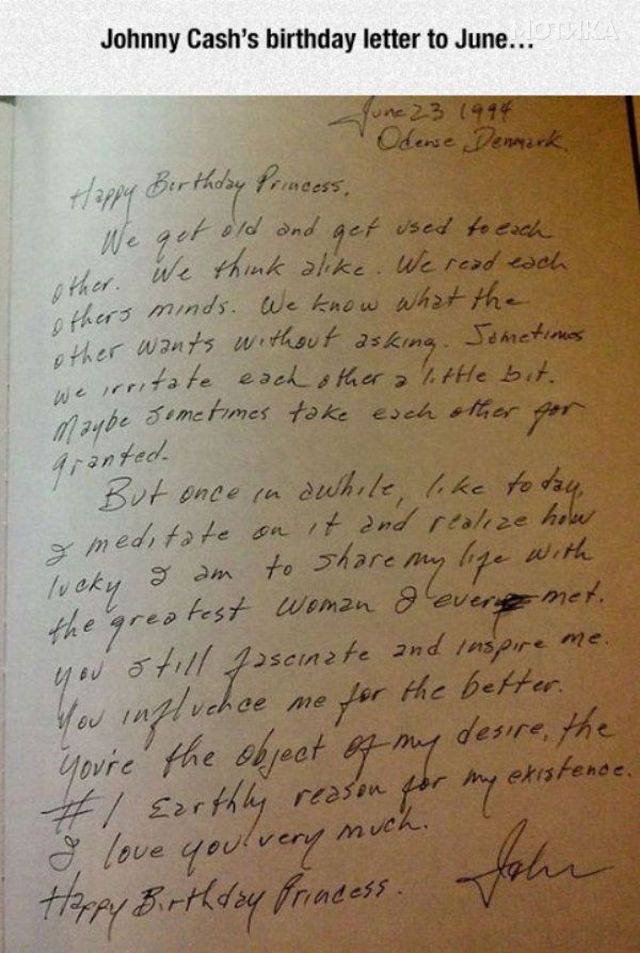 Johnny Cash's birthday letter to June...
МОТИКА
June 23 1994
Odense, Denmark.
Happy Birthday Princess,
We get old and get used to each
other. We think alike. We read each
others minds. We know what the
other wants without asking. Sometimes
we irritate each other a little bit.
Maybe sometimes take each other for
granted.
But once in awhile, like today,
I meditate on it and realize how
lucky I am to share my life with
the greatest woman I ever met.
You still fascinate and inspire me.
You influence me for the better.
You're the object of my desire, the
#1 Earthly reason for my existence.
I love you very much.
Happy Birthday Princess.
John